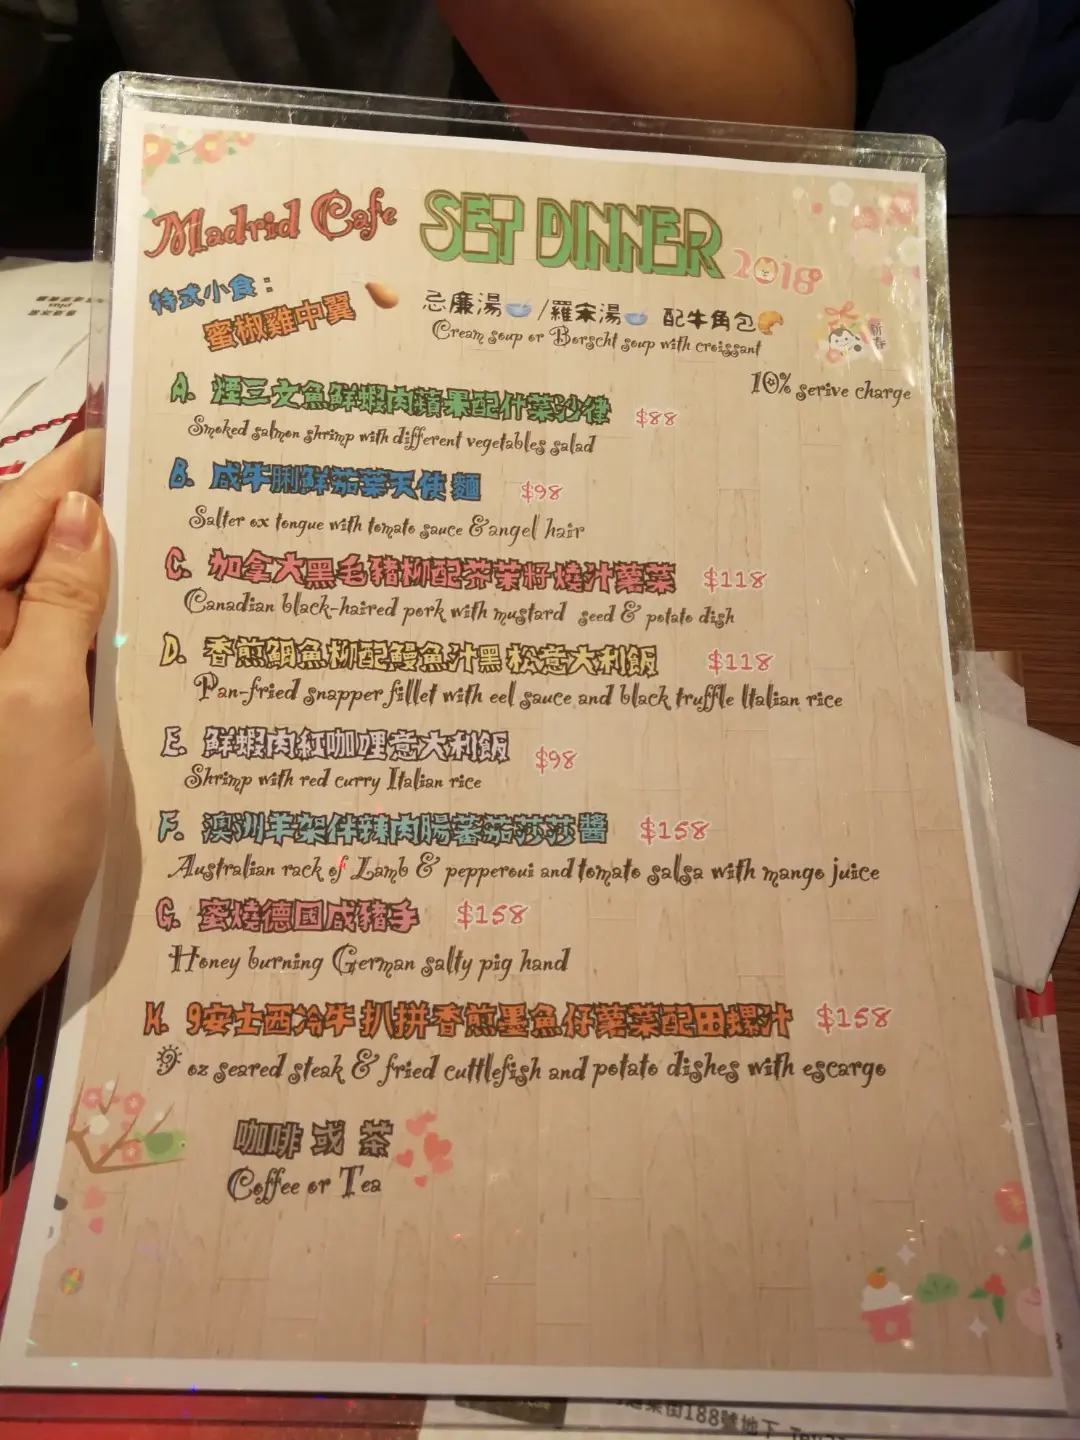 Madrid Cafe SET DINNER 2018
特式小食：
蜜椒雞中翼
忌廉湯 /羅宋湯 配牛角包
Cream soup or Borscht soup with croissant
新春
10% serive charge
A. 煙三文魚鮮蝦肉蘋果配什菜沙律 $88
Smoked salmon shrimp with different vegetables salad
B. 咸牛脷鮮茄菜天使麵 $98
Salter ox tongue with tomato sauce &angel hair
C. 加拿大黑毛豬柳配芥茉籽燒汁薯菜 $118
Canadian black-haired pork with mustard seed & potato dish
D. 香煎鯛魚柳配鰻魚汁黑松意大利飯 $118
Pan-fried snapper fillet with eel sauce and black truffle Italian rice
E. 鮮蝦肉紅咖哩意大利飯 $98
Shrimp with red curry Italian rice
F. 澳洲羊架伴辣肉腸蕃茄莎莎醬 $158
Australian rack of Lamb & pepperoui and tomato salsa with mango juice
G. 蜜燒德國咸豬手 $158
Honey burning German salty pig hand
K. 9安士西冷牛扒拼香煎墨魚仔薯菜配田螺汁 $158
9 oz seared steak & fried cuttlefish and potato dishes with escargo
咖啡 或 茶
Coffee or Tea
街188號地下